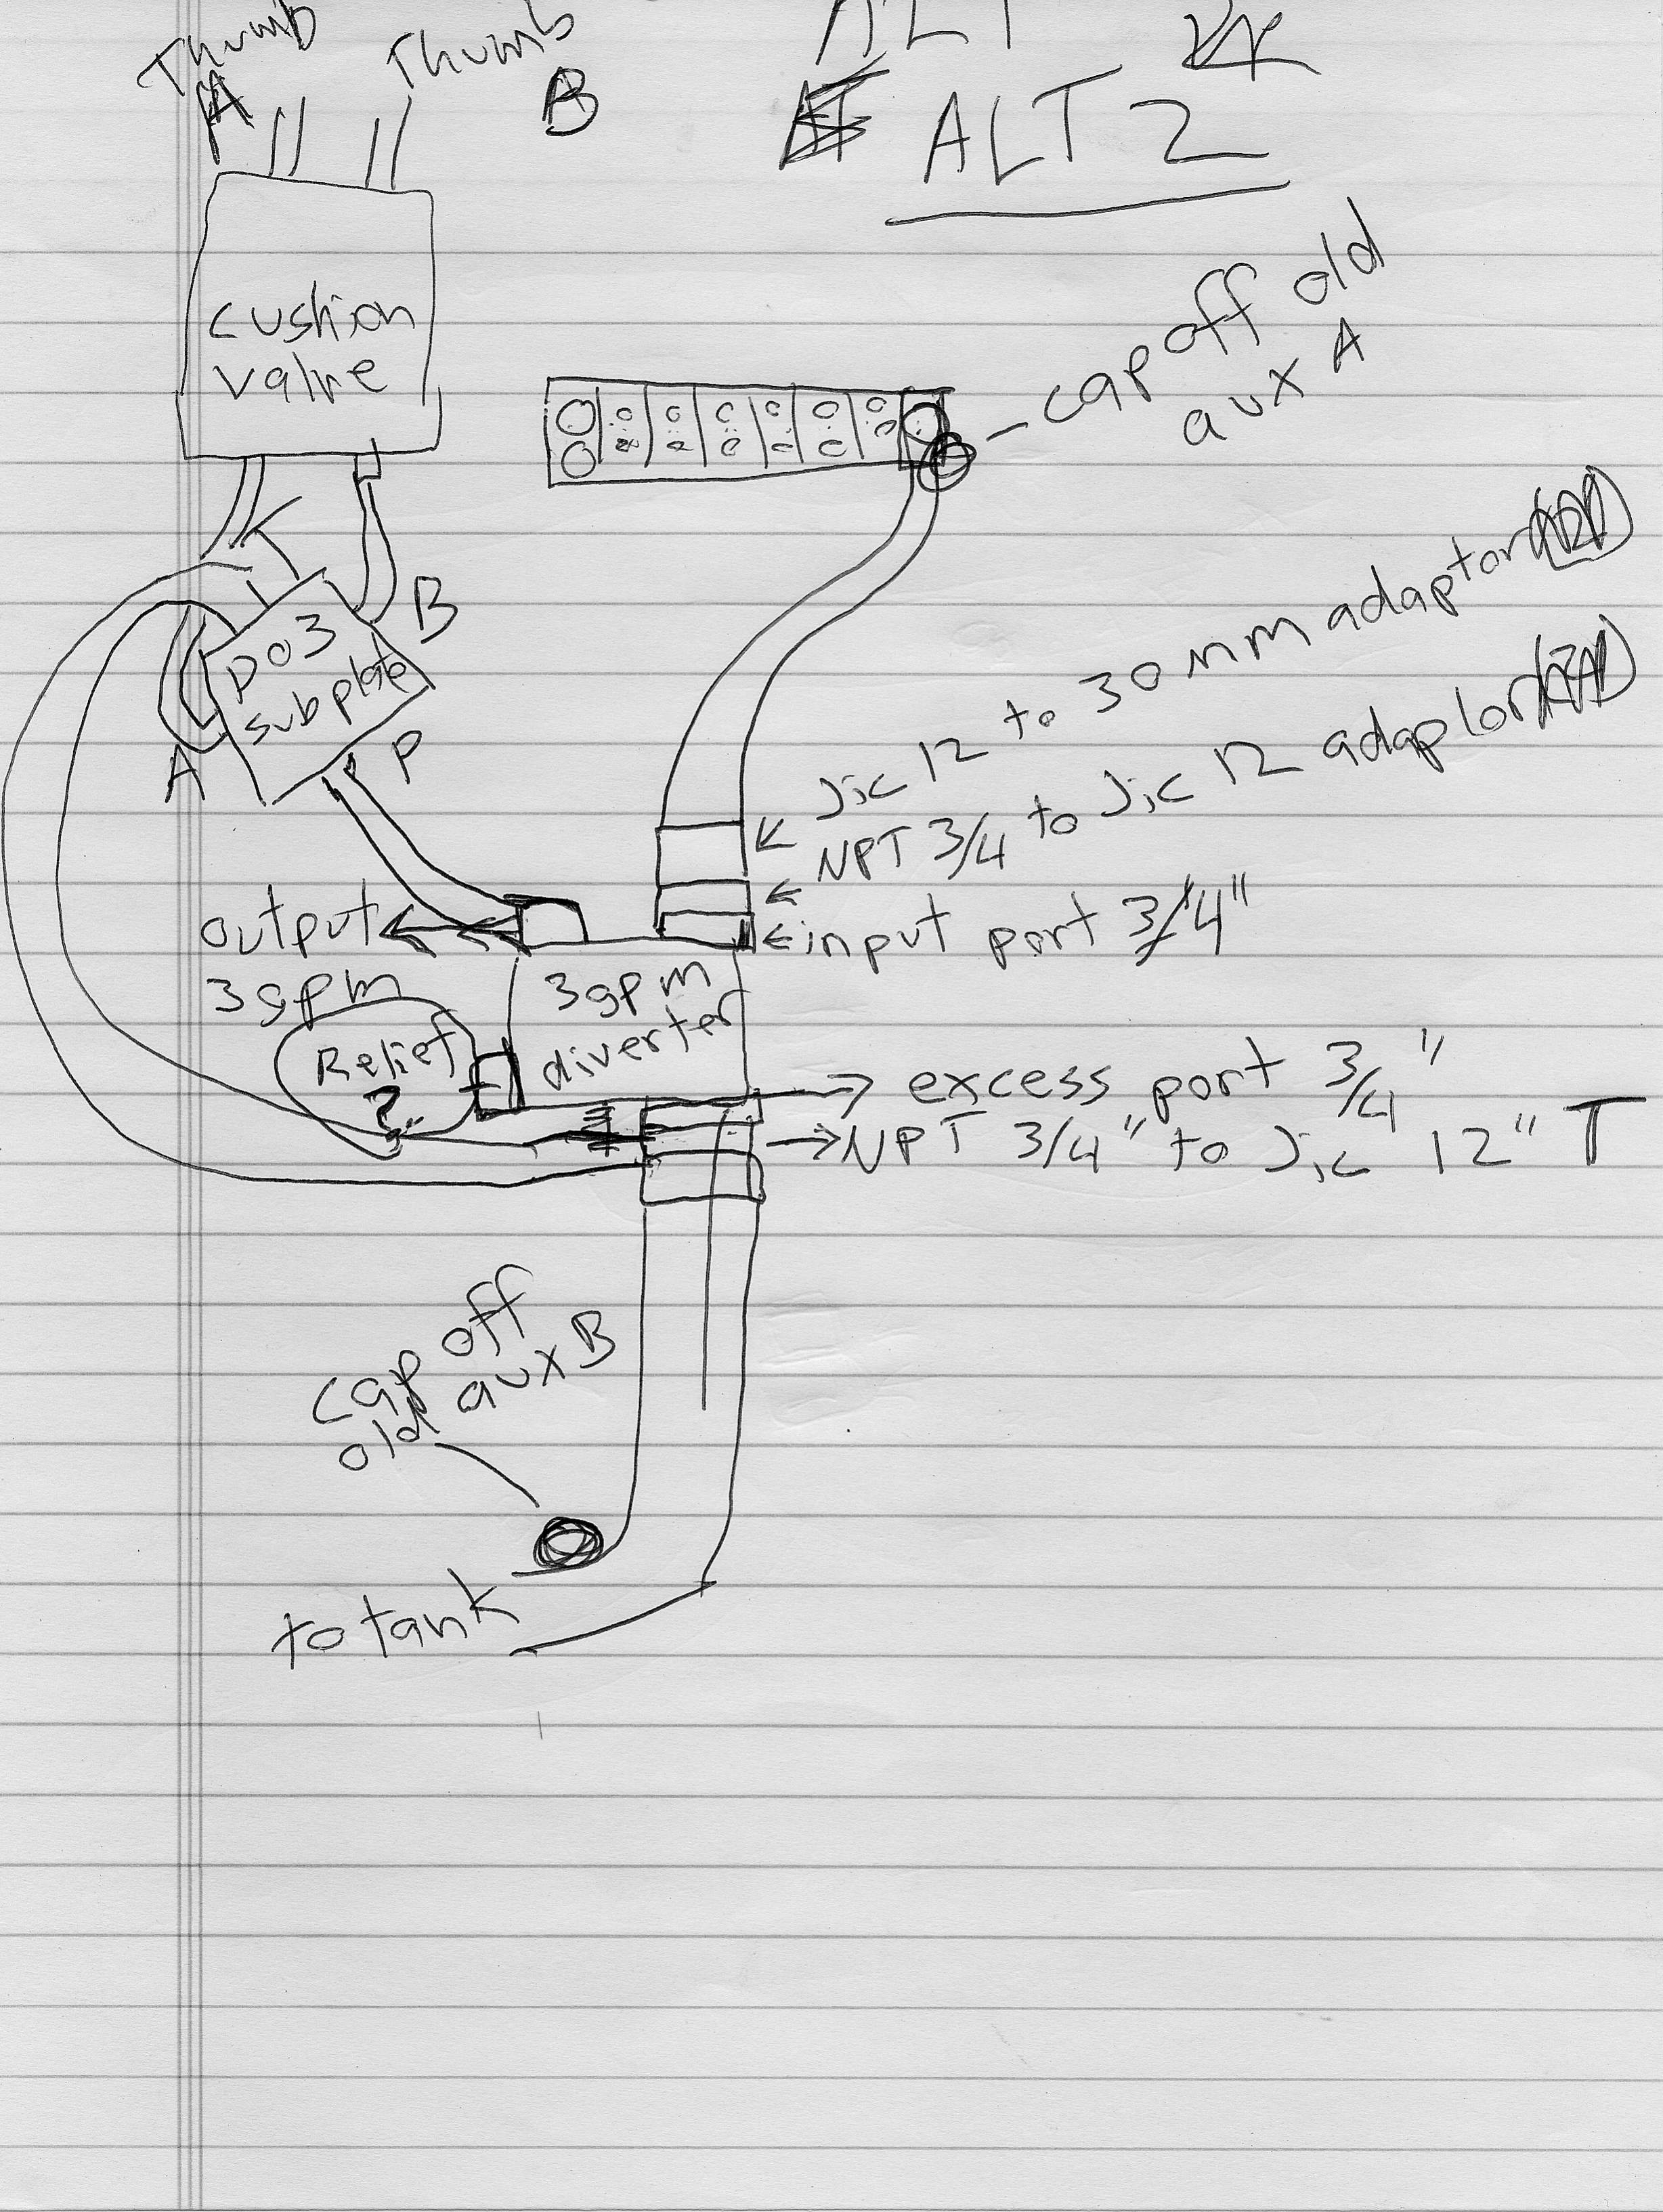 Thumb
A
Thumb
B
ALT
ALT 2
cushion
valve
cap off old
aux A
T
B
D03
subplate
A
P
Jic 12 to 30 mm adaptor
NPT 3/4 to Jic 12 adaptor
input port 3/4"
output
3gpm
3gpm
diverter
Relief
?
excess port 3/4"
NPT 3/4" to Jic 12" T
cap off
old aux B
to tank